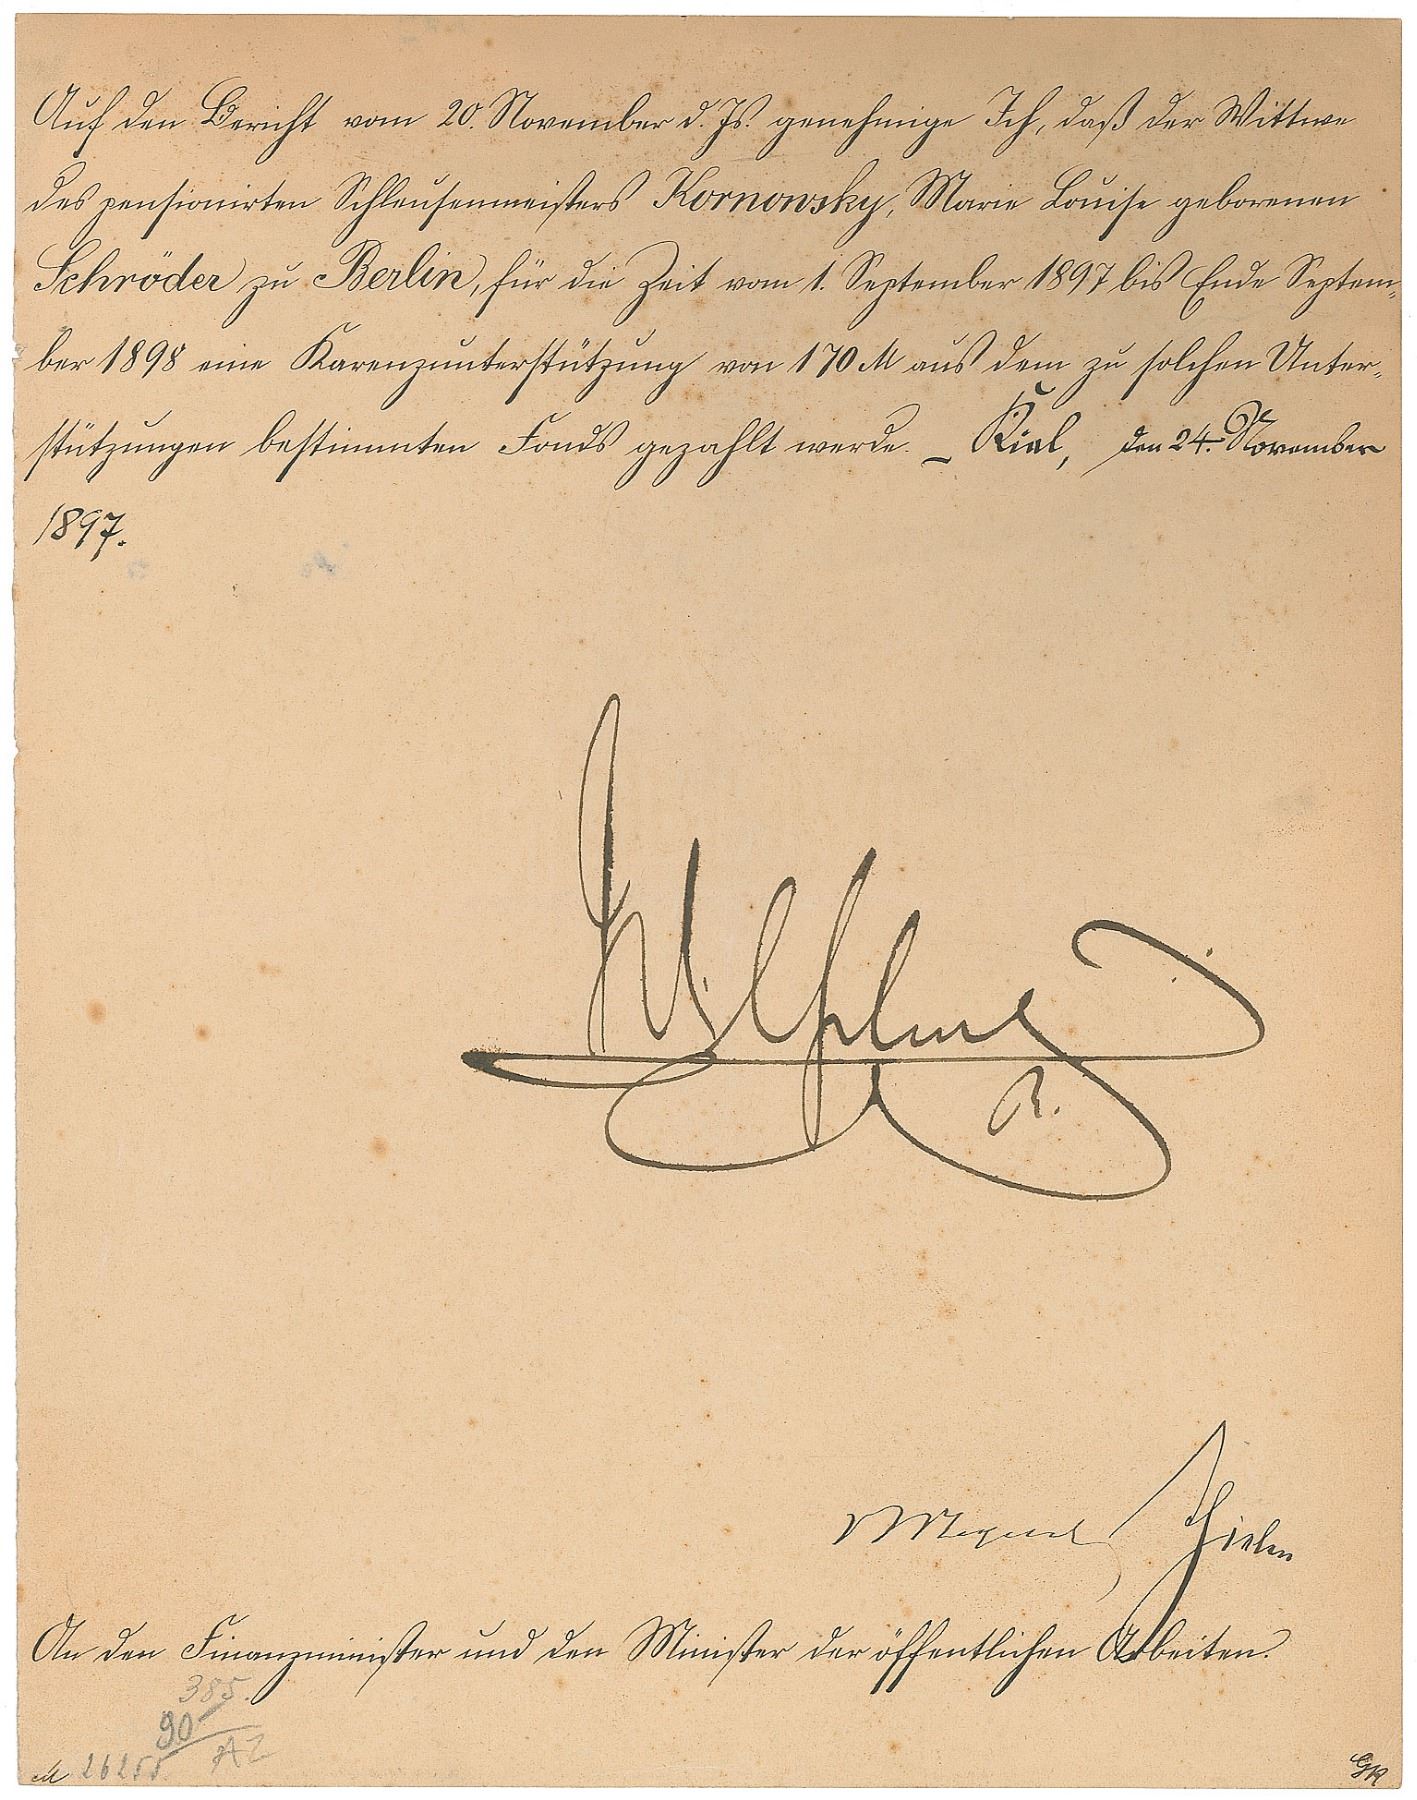 Auf den Bericht vom 20. November d. Js. genehmige Ich, daß der Wittwe
des pensionirten Schleusenmeisters Kornowsky, Marie Louise geborenen
Schröder zu Berlin, für die Zeit vom 1. September 1897 bis Ende Septem-
ber 1898 eine Karenzunterstützung von 170 M aus dem zu solchen Unter-
stützungen bestimmten Fonds gezahlt werde. – Kiel, den 24. November
1897.
Wilhelm
R.
Miquel Thielen
An den Finanzminister und den Minister der öffentlichen Arbeiten.
385.
90
A2
M 26255